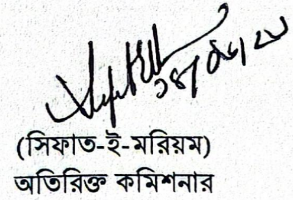 (সিফাত-ই-মরিয়ম)
অতিরিক্ত কমিশনার